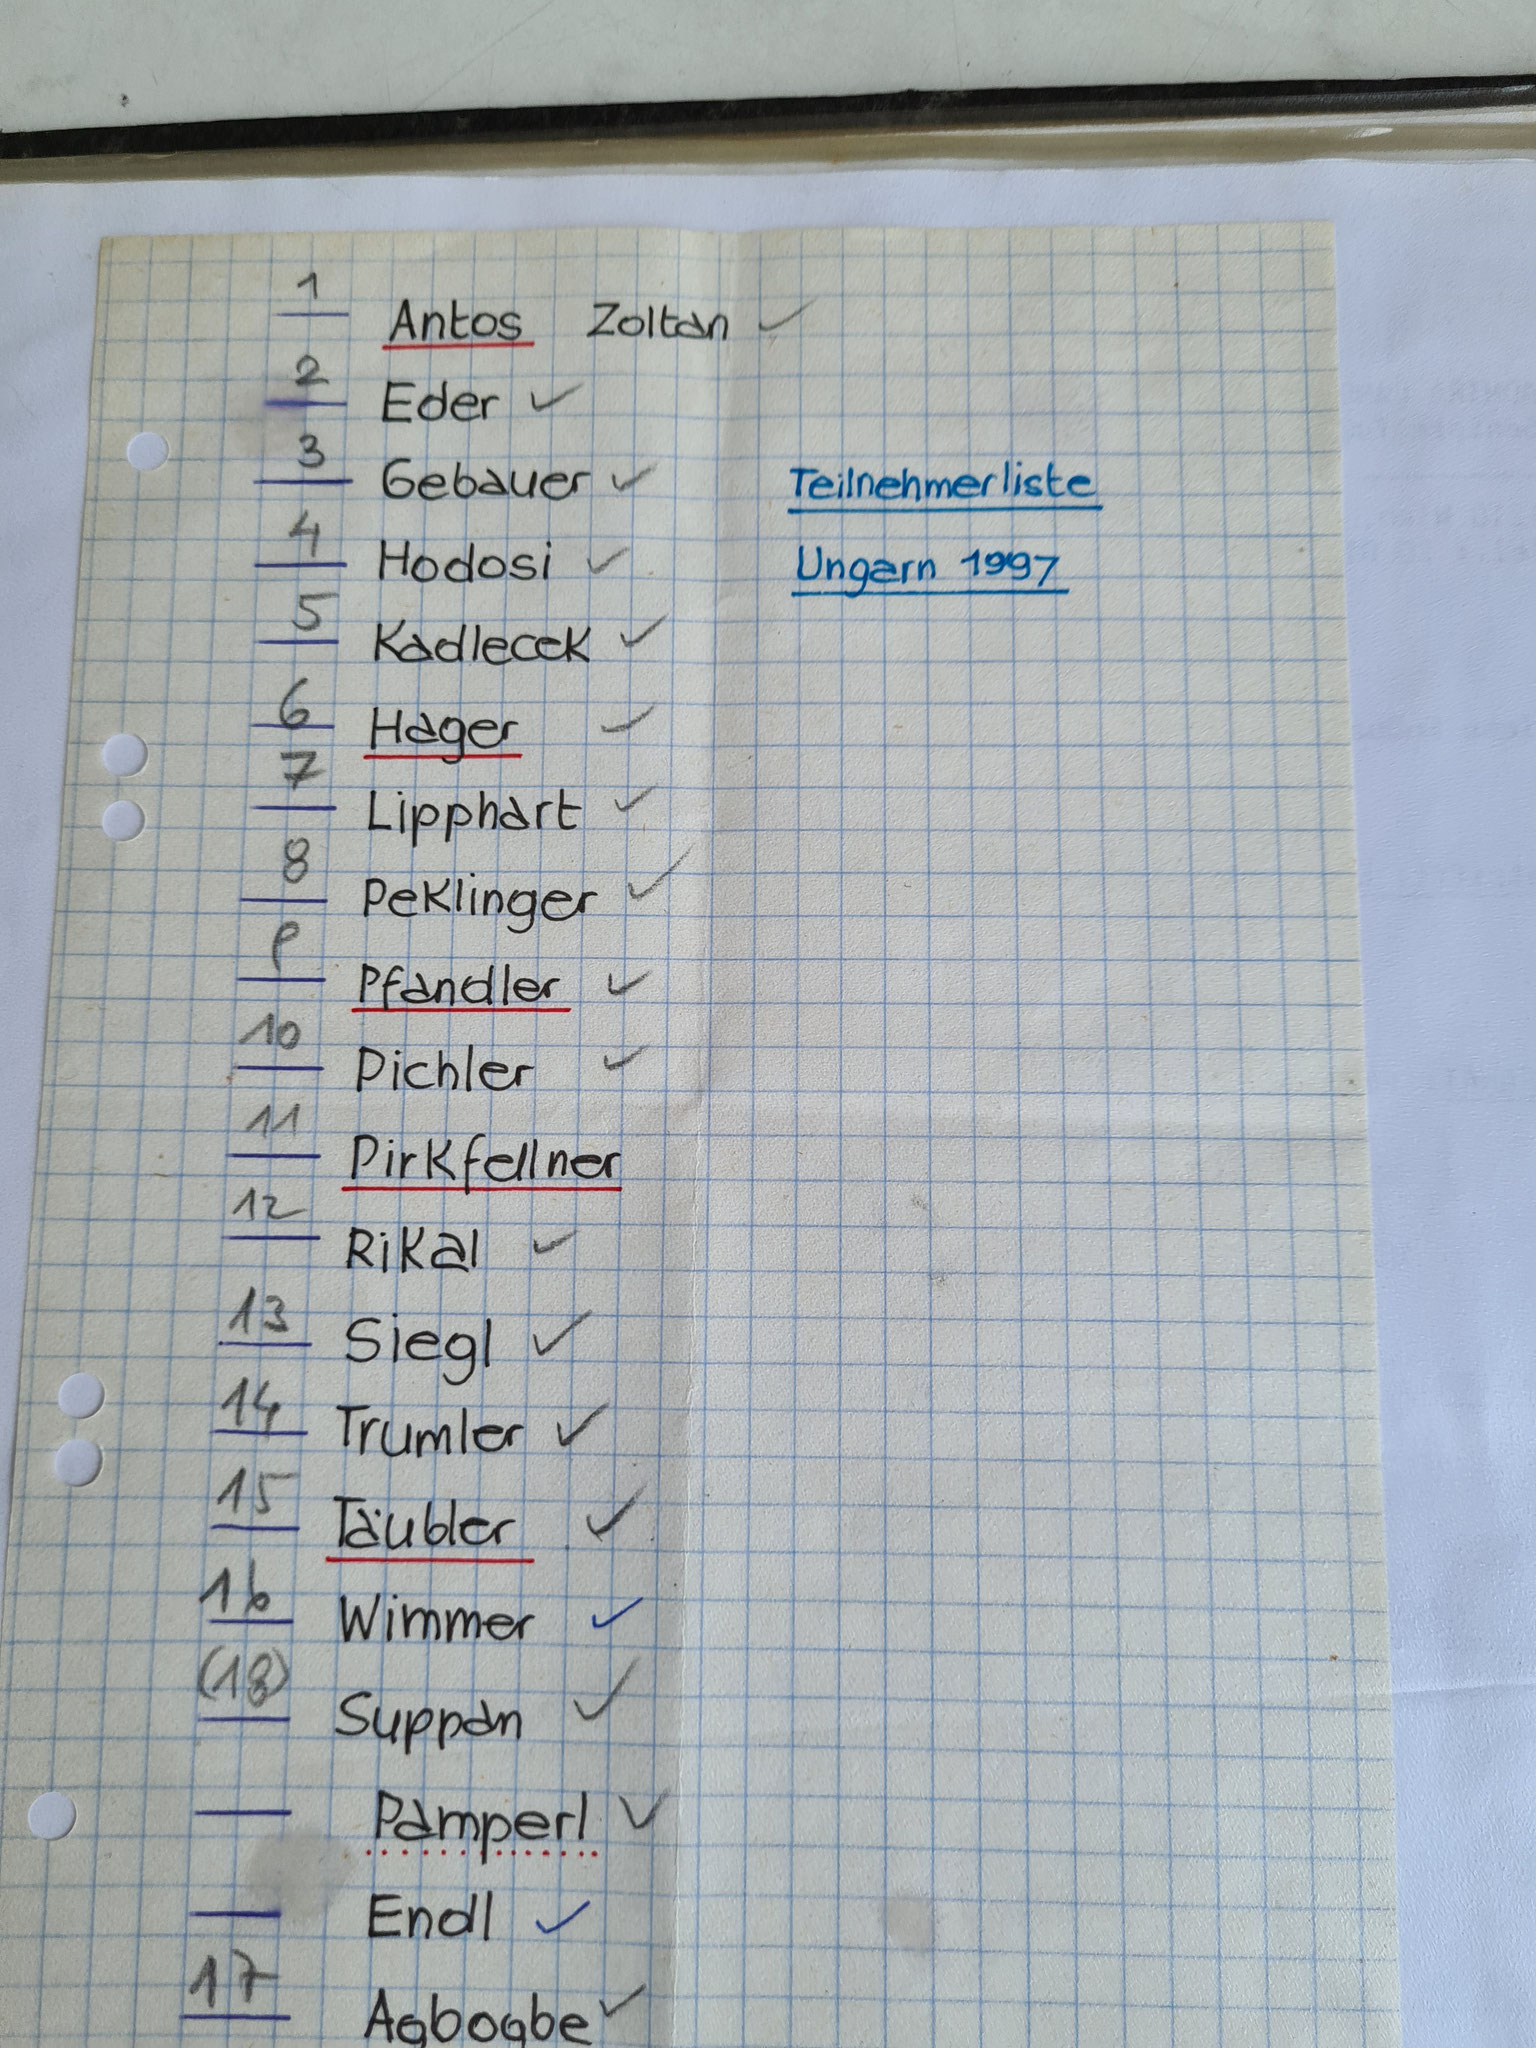 1 Antos Zoltan ✓
2 Eder ✓
3 Gebauer ✓
Teilnehmerliste
4 Hodosi ✓
Ungarn 1997
5 Kadlecek ✓
6 Hager ✓
7 Lipphart ✓
8 Peklinger ✓
9 Pfandler ✓
10 Pichler ✓
11 Pirkfellner
12 Rikal ✓
13 Siegl ✓
14 Trumler ✓
15 Täubler ✓
16 Wimmer ✓
(18) Suppan ✓
Pamperl ✓
Endl ✓
17 Agbogbe ✓